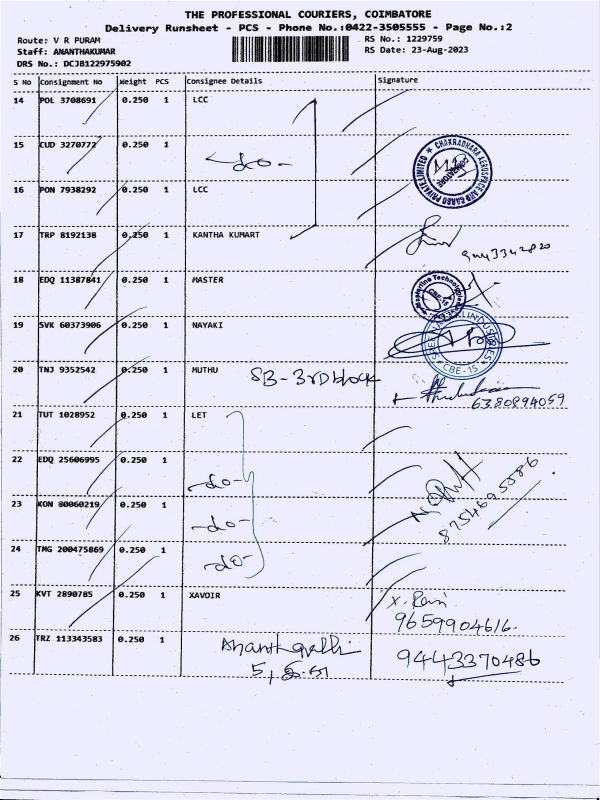 THE PROFESSIONAL COURIERS, COIMBATORE
Delivery Runsheet - PCS - Phone No.:0422-3505555 - Page No.:2
Route: V R PURAM
RS No.: 1229759
Staff: ANANTHAKUMAR
RS Date: 23-Aug-2023
DRS No.: DCJB122975902
S No Consignment No Weight PCS Consignee Details Signature
14 POL 3708691 0.250 1 LCC
15 CUD 3270772 0.250 1 -do-
CHAKRADHARA AEROSPACE AND CARGO PRIVATE LIMITED
COIMBATORE
16 PON 7938292 0.250 1 LCC
17 TRP 8192138 0.250 1 KANTHA KUMART
18 EDQ 11387841 0.250 1 MASTER
CBE-15
19 SVK 60373906 0.250 1 NAYAKI
CBE-15
20 TNJ 9352542 0.250 1 MUTHU SB-3rd block
6380894059
21 TUT 1028952 0.250 1 LET
22 EDQ 25606995 0.250 1 -do-
8754695586
23 KON 80060219 0.250 1 -do-
24 TMG 200475869 0.250 1 -do-
25 KVT 2890785 0.250 1 XAVOIR X. Ravi
9659904616
26 TRZ 113343583 0.250 1
9443370486